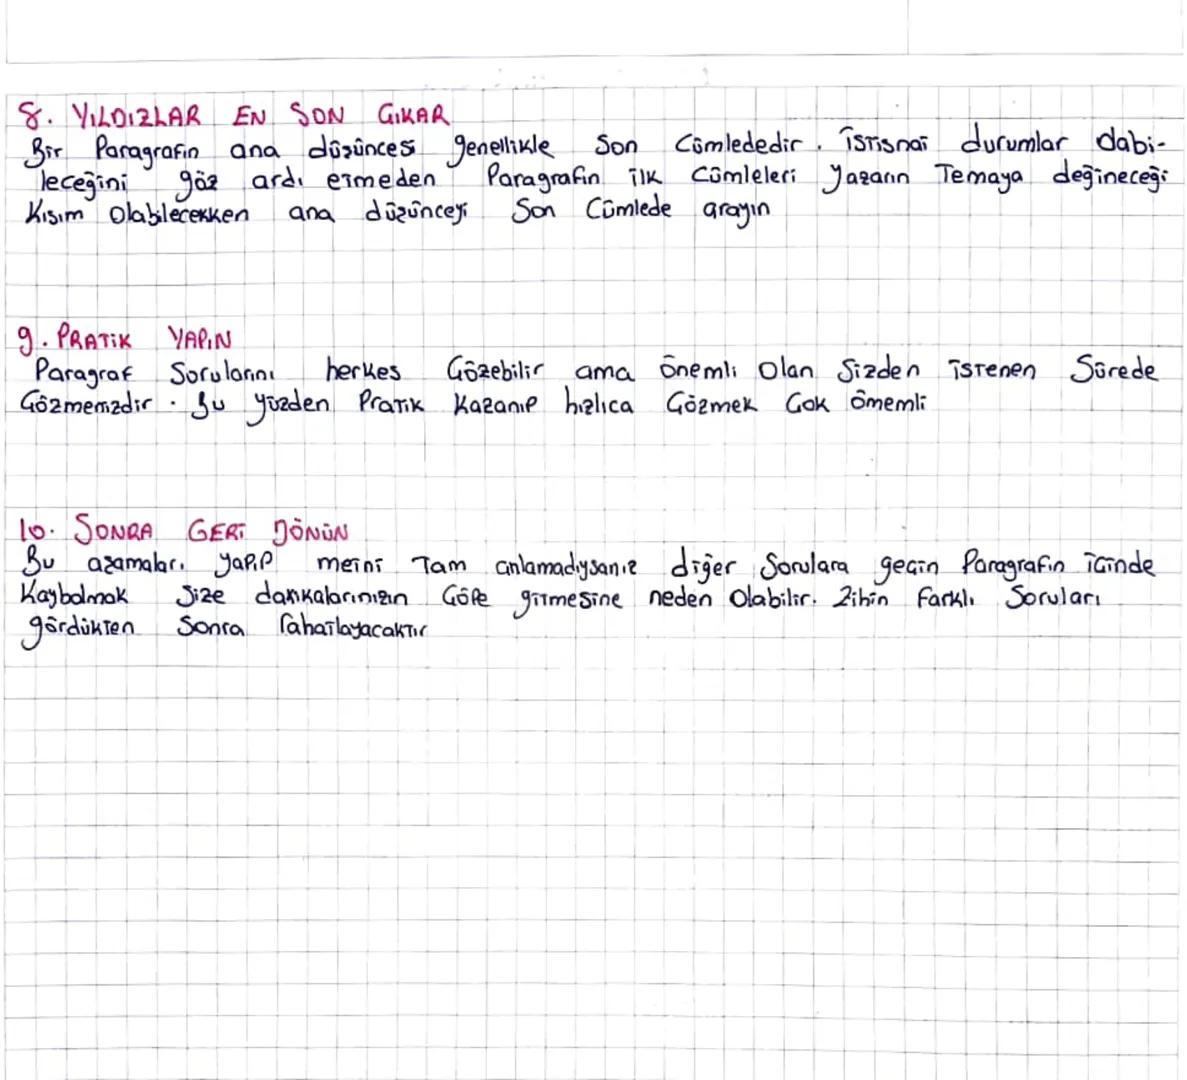 8. YILDIZLAR EN SON GIKAR
Bir Paragrafın ana düşüncesi genellikle Son Cümlededir. istisnai durumlar olabi-
leceğini göz ardı etmeden Paragrafın ilk Cümleleri yazarın Temaya değineceği
Kısım Olabilecekken ana düşünceyi Son Cümlede arayın
9. PRATİK YAPIN
Paragraf Sorularını herkes Gözebilir ama önemli Olan Sizden istenen Sürede
Gözmenizdir. Bu yüzden Pratik Kazanıp hızlıca Gözmek Gok önemli
10. SONRA GERİ DÖNÜN
Bu aşamaları yapıp metni Tam anlamadıysanız diğer Sorulara geçin Paragrafın içinde
Kaybolmak Size dakikalarınızın Göpe gitmesine neden Olabilir. Zihin farklı Soruları
gördükten Sonra rahatlayacaktır